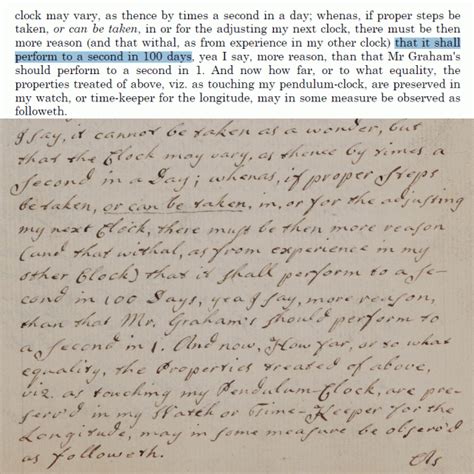 clock may vary, as thence by times a second in a day; whenas, if proper steps be
taken, or can be taken, in or for the adjusting my next clock, there must be then
more reason (and that withal, as from experience in my other clock) that it shall
perform to a second in 100 days, yea I say, more reason, than that Mr Graham's
should perform to a second in 1. And now how far, or to what equality, the
properties treated of above, viz. as touching my pendulum-clock, are preserved in
my watch, or time-keeper for the longitude, may in some measure be observed as
followeth.
I say, it cannot be taken as a wonder, but
that the Clock may vary, as thence by times a
Second in a Day; whenas, if proper Steps
be taken, or can be taken, in, or for the adjusting
my next Clock, there must be then more reason
(and that withal, as from experience in my
other Clock) that it shall perform to a Se-
cond in 100 Days, yea I say, more reason,
than that Mr. Graham's should perform to
a Second in 1. And now, How far, or to what
equality, the Properties treated of above,
viz. as touching my Pendulum-Clock, are pre-
serv'd in my Watch or Time-Keeper for the
Longitude, may in some measure be observ'd
as followeth.